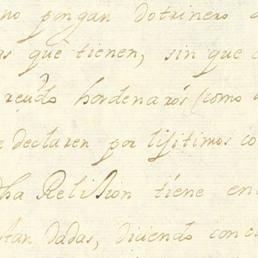 no pongan dotrinero
que tienen, sin que
hordenarõs (como
declaren por lisitimos
dha Relission tiene en
tan dadas, diciendo con